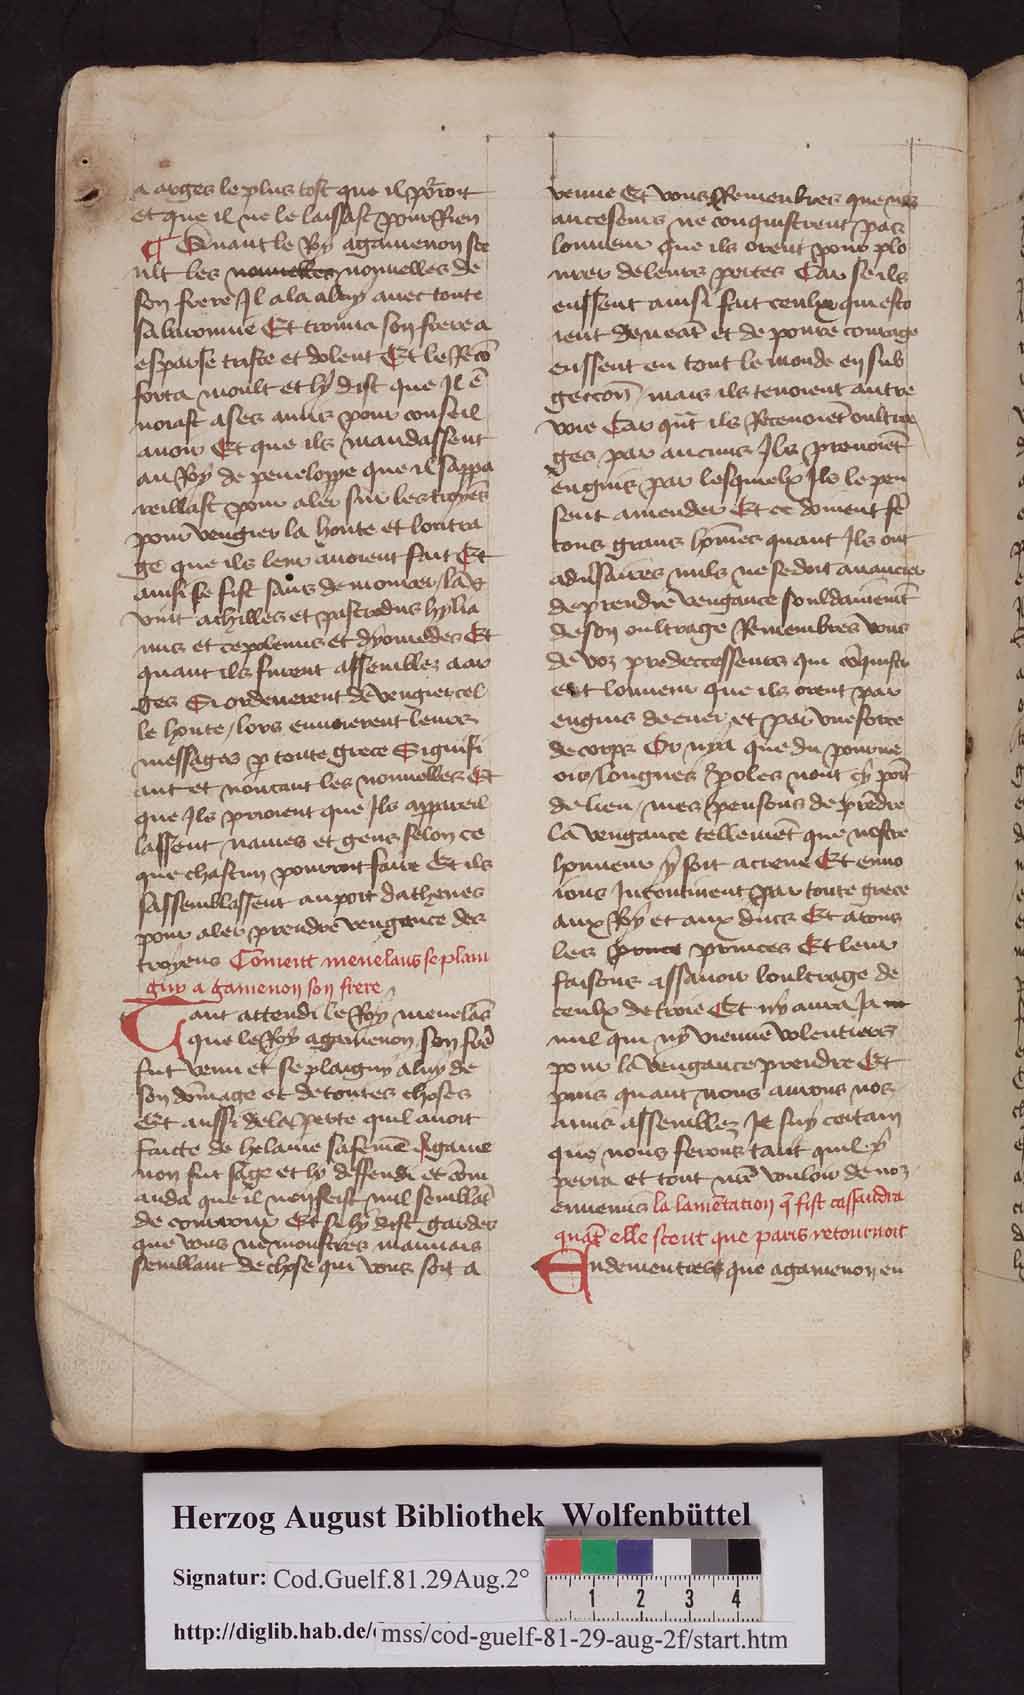 a arges le plus tost que il porroit
et que il ne le laissast pour Rien
¶ Quant le Roy agamenon sce
ult les nouuelles nouuelles de
son frere Il ala a luy auec toute
sa
Et trouua son frere a
esparse triste et dolent Et le Recō
forta moult et ly dist que Il ē
uoiast a ses amis pour conseil
auoir Et que ils mandassent
au Roy de peneloppe que il sappa
reillast pour aler sur les troyēs
pour vengier la honte et loultra
ge que ils leur auoient fait Et
ainsi se fist sans demourer / la
vint achilles et patrodus
et
et dyomedes Et
quant ils furent assemblez a ar
ges Si ordenerent de vengier cel
le honte / lors enuoierent leurs
messages p toute grece Signifi
ant et noncant les nouuelles Et
que Ils prioient que Ils appareil
lassent naues et gens selon ce
que chascun pourroit faire Et ils
sassemblassent au port dathenes
pour aler prendre vengance des
troyens Cōment menelaus se plain
gny a gamenon son frere
Tant attendi le Roy menelas
que le Roy agamenon son frē
fut venu et se plaigny a luy de
son dōmage et de toutes choses
Et aussi de la perte quil auoit
faicte de helaine sa femē Agame
non fut sage et ly deffendi et cōm
anda que il nen feist nul semblāt
de courroux Et si ly dist gardes
que vous ne monstres mauuais
semblant de chose qui vous soit a
venue Et vous Remenbres que nos
ancesseurs ne conquistrent pas
lonneur que ils orent pour plo
urer de leurs pertes Car se ils
eussent ainsi fait ceulx qui esto
ient de neāt et de poure courage
eussent eu tout le monde en sub
geccon / mais ils tenoient autre
voie Car qāt ils Receuoiēt oultra
ges par aucuns Ils prenoiēt
engins par lesquielx Ils le peu
sent amender Et ce doiuent fē
tous grans hōmes quant Ils ont
aduersaires nuls ne se doit auancier
de prendre vengance souldainemēt
de son oultrage Remembres vous
de voz predeccessseurs qui cōquistr
ent lonneur que ils orent par
engins de cuer et par viue force
de corps Or nya que du pourue
oir / longues poles nont cy port
de lieu / mes pensons de prēdre
la vengance tellemēt que nostre
honneur y soit acreue Et enuo
ions Incontinent par toute grece
aux Roy et aux ducs Et a tous
les prince princes Et leur
faisons assauoir loultrage de
ceulx de troie Et ny aura Ja
nul qui ny vienne volentiers
pour la vengance prendre Et
puis quant nous aurons nos
amis assemblez Je suy certain
que nous ferons tant quil y
perra et tout
vouloir de noz
ennemis la lamētation q̄ fist cassandra
quāt elle sceut que paris retournoit
Endementiers que agamenon en
Herzog August Bibliothek Wolfenbüttel
Signatur: Cod.Guelf.81.29Aug.2°
1 2 3 4
http://diglib.hab.de/ mss/cod-guelf-81-29-aug-2f/start.htm